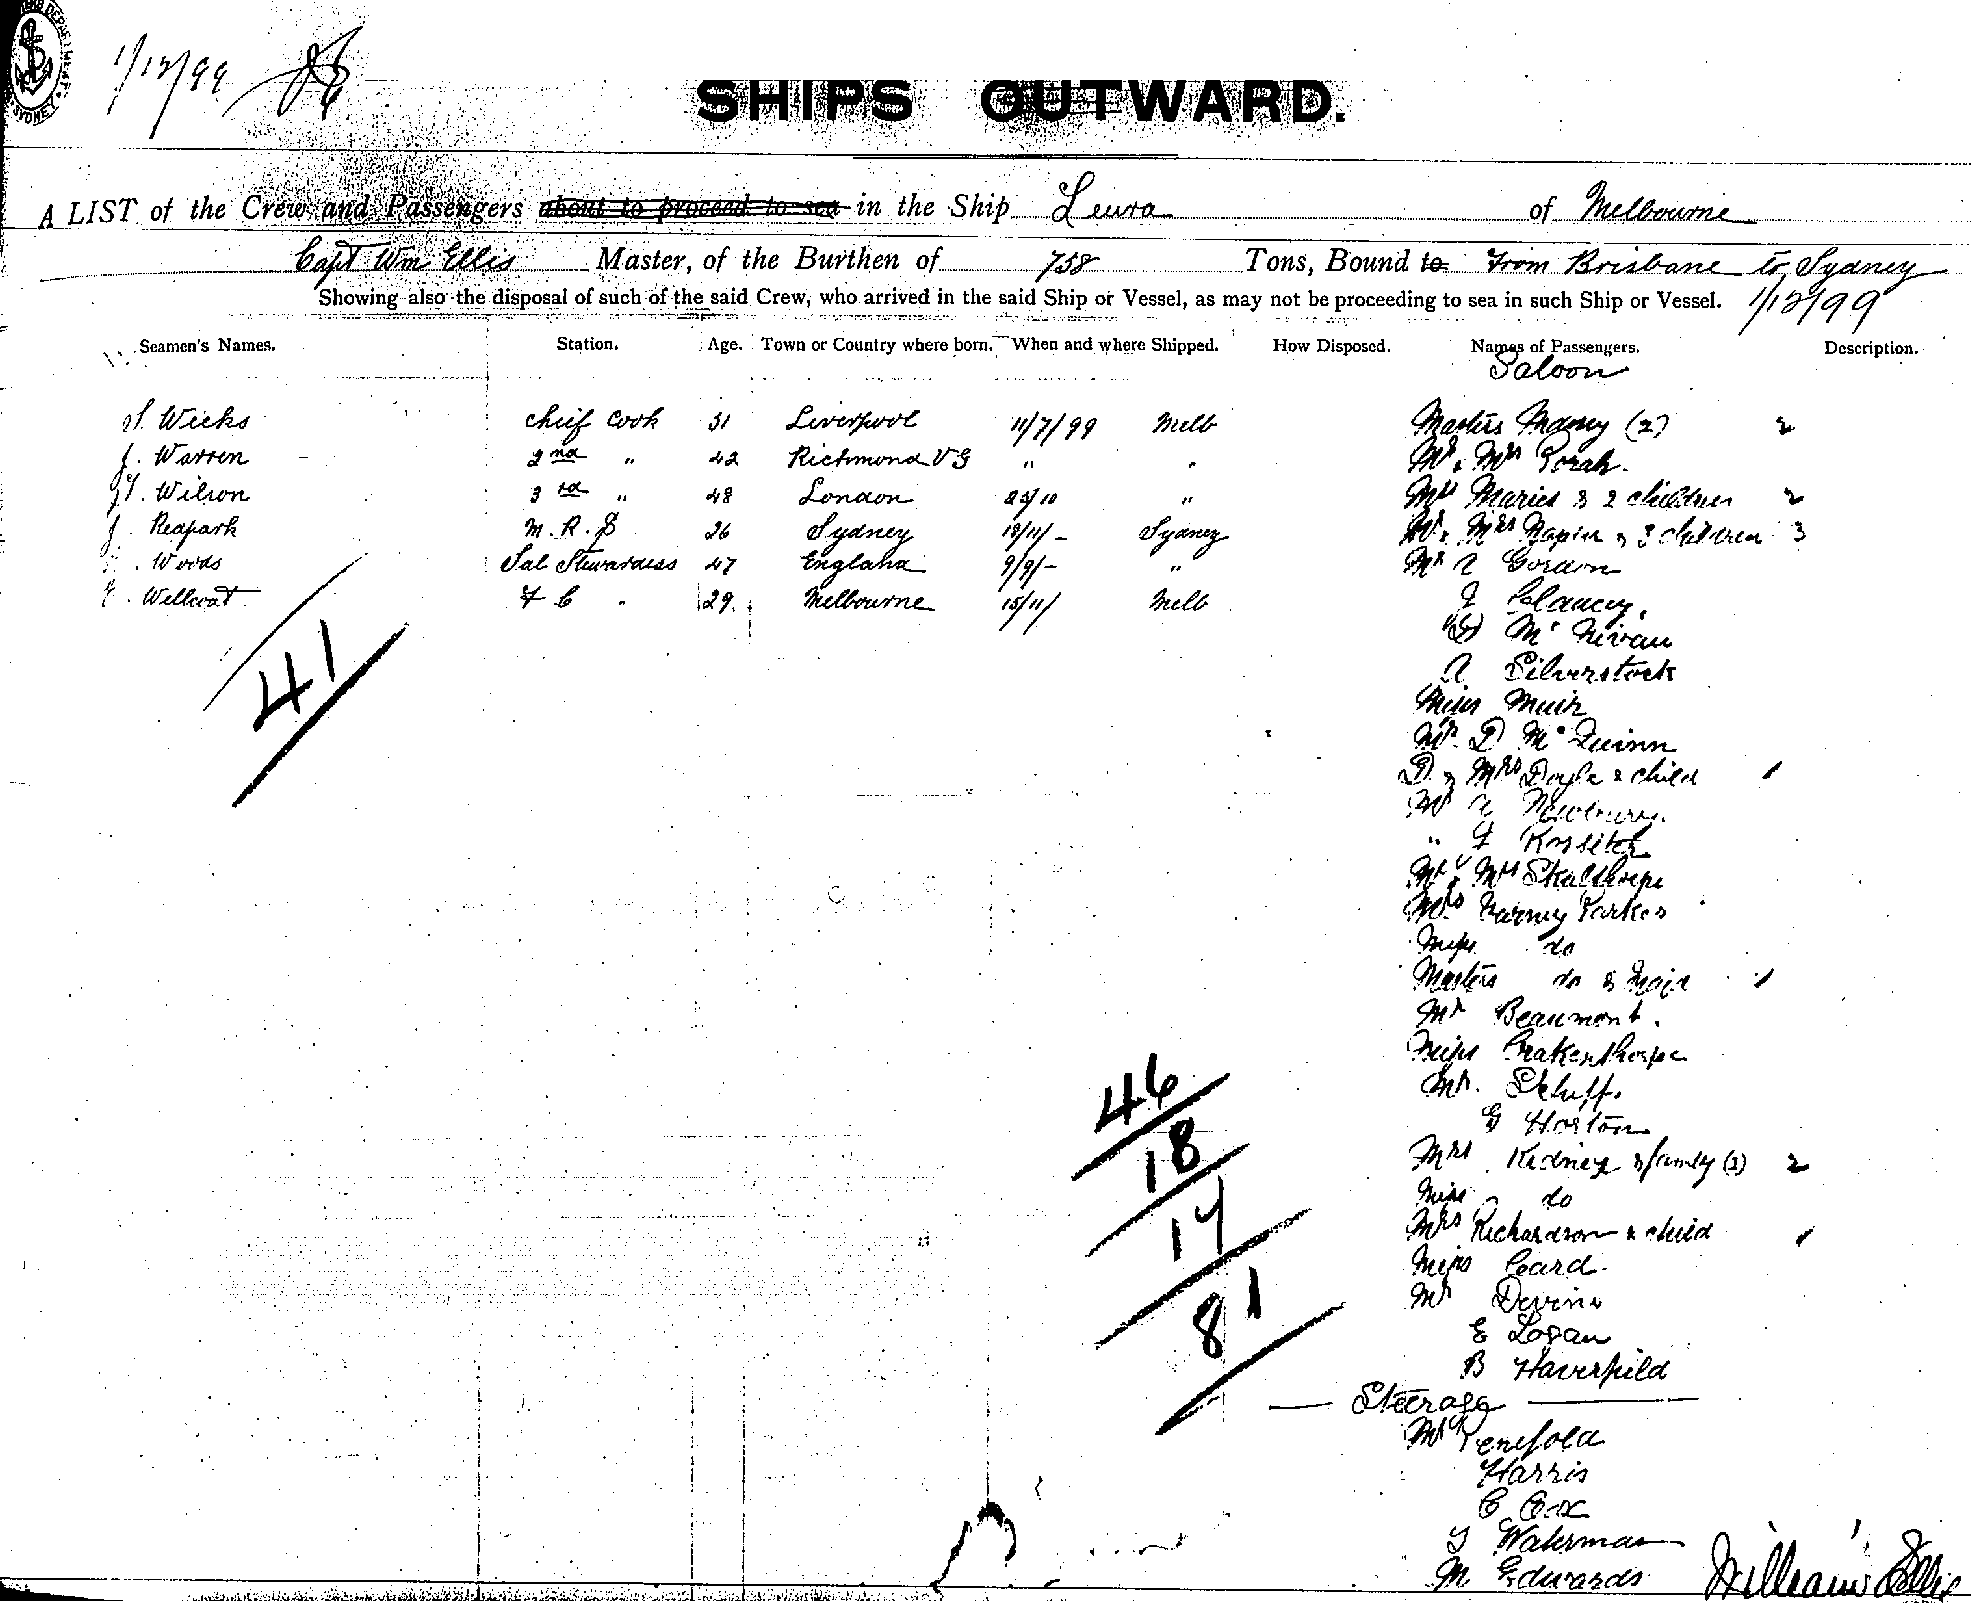 1/12/99
SHIPS OUTWARD.
A LIST of the Crew and Passengers about to proceed to sea in the Ship Leura of Melbourne
Capt Wm Ellis Master, of the Burthen of 758 Tons, Bound to From Brisbane to Sydney
Showing also the disposal of such of the said Crew, who arrived in the said Ship or Vessel, as may not be proceeding to sea in such Ship or Vessel. 1/12/99
Seamen's Names. Station. Age. Town or Country where born. When and where Shipped. How Disposed. Names of Passengers. Description.
Saloon
Wicks Chief Cook 31 Liverpool 11/7/99 Melb Masters (2) 2
J. Warren 2nd " 42 Richmond " " Mr & Mrs
Wilson 3rd " 48 London 25/10 " Mrs Maries & 2 children 2
J. Redpark M. R. S 26 Sydney 18/11/- Sydney Mr & Mrs Napier & 3 children 3
Woods Sal Stewardess 47 England 9/9/- " Mr A Gordon
F C " 29 Melbourne 15/11/ Melb J Clancey.
41
Mc Nivan
A Silverstock
Miss Muir
Mr D Mc Quinn
D. & Mrs Doyle & child 1
Mr Newbury
" F Rossiter
Mr & Mrs Skulthorpe
Mrs Parkes
Miss do
Masters do & 1
Mr Beaumont.
Miss Crakenthorpe
Mr.
G Horton
Mrs Kidney & family (2) 2
Miss do
Mrs Richardson & child 1
Miss Card
Mr Devine
E Logan
B Haverfield
46
18
17
81
Steerage
Mr Penfold
Harris
C Cox
Waterman
M Edwards
William Ellis